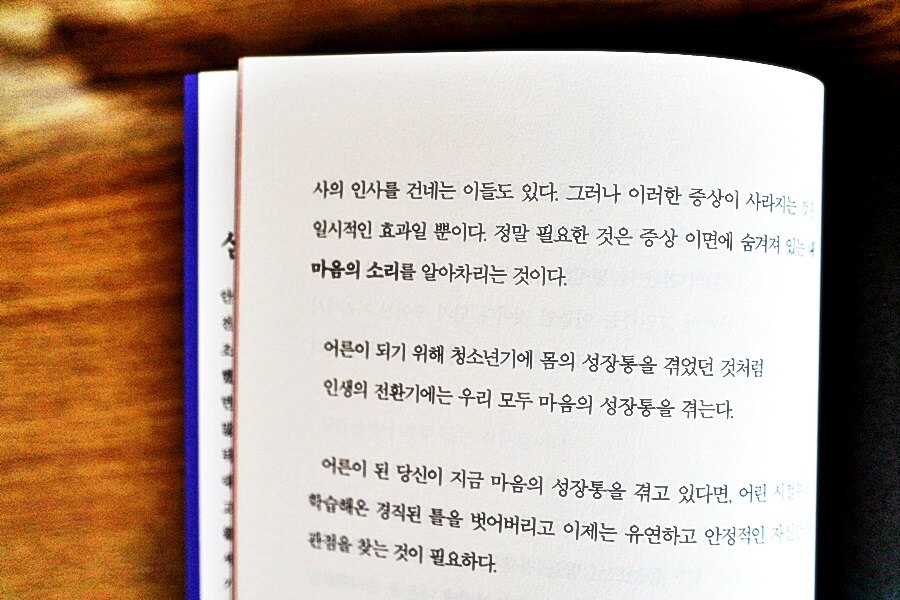 사의 인사를 건네는 이들도 있다. 그러나 이러한 증상이 사라지는
일시적인 효과일 뿐이다. 정말 필요한 것은 증상 이면에 숨겨져 있는
마음의 소리를 알아차리는 것이다.
어른이 되기 위해 청소년기에 몸의 성장통을 겪었던 것처럼
인생의 전환기에는 우리 모두 마음의 성장통을 겪는다.
어른이 된 당신이 지금 마음의 성장통을 겪고 있다면, 어린
학습해온 경직된 틀을 벗어버리고 이제는 유연하고 안정적인
관점을 찾는 것이 필요하다.